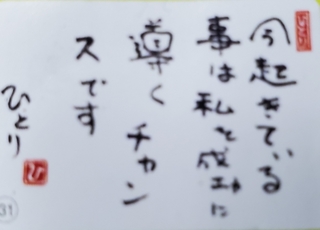 今起きている
事は私を成功に
導くチャン
スです
ひとり
ひとり
ひ
31